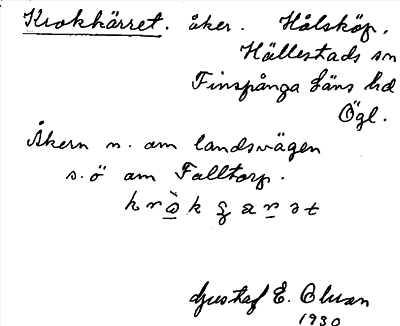 Krokkärret. åker. Hålsköp.
Hällestads sn
Finspånga Läns hd
Ögl.
Åkern n. om landsvägen
s.ö om Falltorp.
Gustaf E. Olson
1930